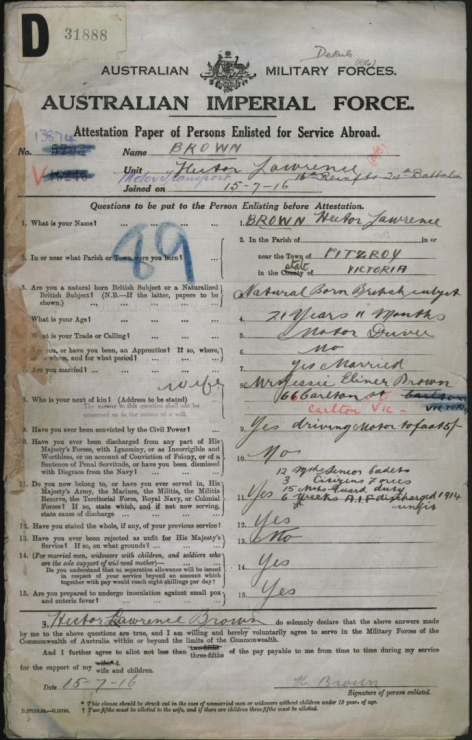 D 31888
Details
AUSTRALIAN MILITARY FORCES.
AUSTRALIAN IMPERIAL FORCE.
Attestation Paper of Persons Enlisted for Service Abroad.
13874
No. Name BROWN
Unit Hector Lawrence
Motor Transport 16th Reinf to 24th Battalion
Joined on 15-7-16
Questions to be put to the Person Enlisting before Attestation.
89
1. What is your Name? ... ... ... 1. BROWN Hector Lawrence
2. In or near what Parish or Town were you born? ... 2. In the Parish of in or
near the Town of FITZROY
in the County of state VICTORIA
3. Are you a natural born British Subject or a Naturalised
British Subject? (N.B.—If the latter, papers to be
shown.) 3. Natural Born British subject
4. What is your Age? ... ... ... 4. 21 Years 11 Months
5. What is your Trade or Calling? ... ... 5. Motor Driver
6. Are you, or have you been, an Apprentice? If so, where,
to whom, and for what period? ... ... 6. No
7. Are you married? ... ... ... 7. Yes Married
wife
8. Who is your next of kin? (Address to be stated) 8. Mrs Jessie Brown
66 Carlton st Carlton
Carlton Vic- VICTORIA
9. Have you ever been convicted by the Civil Power? ... 9. Yes driving Motor to fast 5/-
10. Have you ever been discharged from any part of His
Majesty's Forces, with Ignominy, or as Incorrigible and
Worthless, or on account of Conviction of Felony, or of a
Sentence of Penal Servitude, or have you been dismissed
with Disgrace from the Navy? ... ... 10. No
11. Do you now belong to, or have you ever served in, His
Majesty's Army, the Marines, the Militia, the Militia
Reserve, the Territorial Force, Royal Navy, or Colonial
Forces? If so, state which, and if not now serving,
state cause of discharge ... ... 11. Yes
12 Mths Senior Cadets
3 Citizens Forces
15 Mths Guard duty
6 weeks A.I.F discharged 1914
unfit
12. Have you stated the whole, if any, of your previous service? 12. Yes
13. Have you ever been rejected as unfit for His Majesty's
Service? If so, on what grounds? ... ... 13. No
14. (For married men, widowers with children, and soldiers who
are the sole support of widowed mother)—
Do you understand that no separation allowance will be
issued in respect of your service beyond an amount which
together with pay would reach eight shillings per day? 14. Yes
15. Are you prepared to undergo inoculation against small pox
and enteric fever? ... ... ... 15. Yes
3. Hector Lawrence Brown do solemnly declare that the above answers
made by me to the above questions are true, and I am willing and hereby voluntarily agree to serve in the Military Forces of the
Commonwealth of Australia within or beyond the limits of the Commonwealth.
And I further agree to allot not less than two-fifths three-fifths of the pay payable to me from time to time during my service
for the support of my wife wife and children.
Date 15-7-16 H. Brown
Signature of person enlisted.
* This clause should be struck out in the case of unmarried men or widowers without children under 18 years of age.
† Two-fifths must be allotted to the wife, and if there are children three-fifths must be allotted.